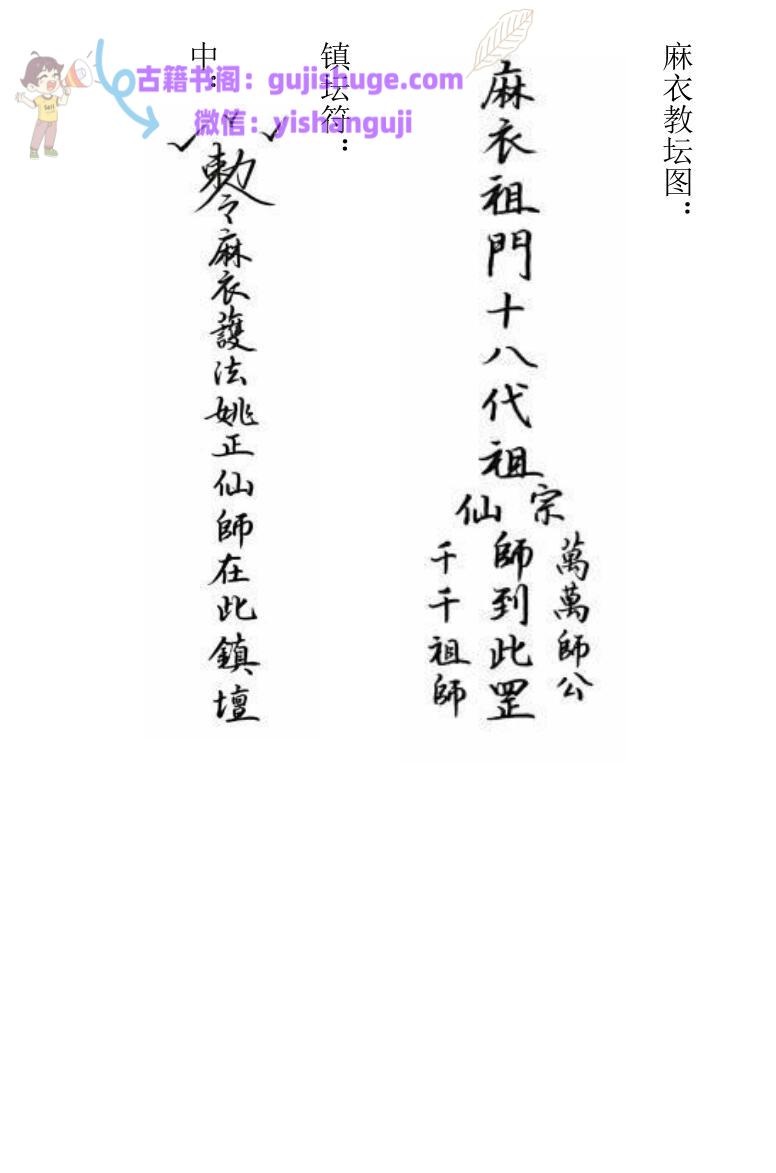 麻衣教坛图：
麻衣祖門十八代祖
宗
仙
萬萬師公
師到此罡
千千祖師
镇坛符：
中：
勅令麻衣護法姚正仙師在此鎮壇
古籍书阁：gujishuge.com
微信：yishanguji